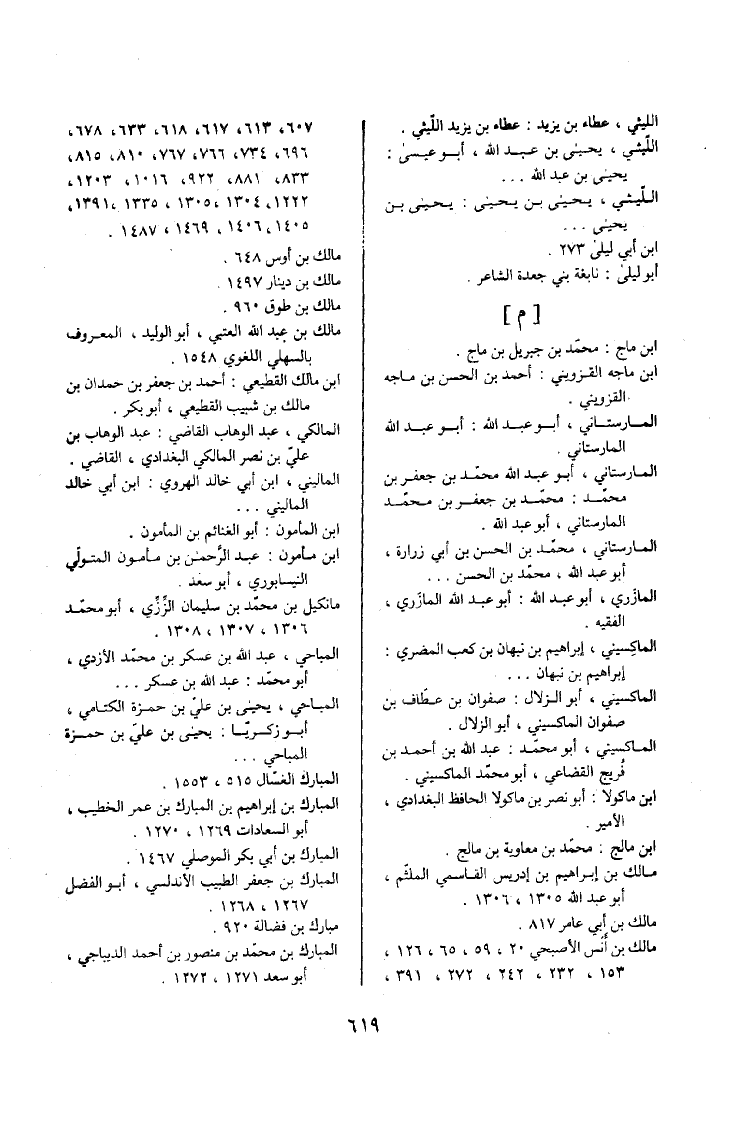 الليثي ، عطاء بن يزيد : عطاء بن يزيد اللّيثي .
اللّيثي ، يحيىٰ بن عبد الله ، أبو عيسىٰ :
يحيىٰ بن عبد الله ...
اللّيثي ، يحيىٰ بن يحيىٰ : يحيىٰ بن
يحيىٰ ...
ابن أبي ليلىٰ ٢٧٣ .
أبو ليلىٰ : نابغة بني جعدة الشاعر .
[ م ]
ابن ماج : محمّد بن جبريل بن ماج .
ابن ماجه القزويني : أحمد بن الحسن بن ماجه
القزويني .
المارستاني ، أبو عبد الله : أبو عبد الله
المارستاني .
المارستاني ، أبو عبد الله محمّد بن جعفر بن
محمّد : محمّد بن جعفر بن محمّد
المارستاني ، أبو عبد الله .
المارستاني ، محمّد بن الحسن بن أبي زرارة ،
أبو عبد الله ، محمّد بن الحسن ...
المازَري ، أبو عبد الله : أبو عبد الله المازَري ،
الفقيه .
الماكِسيني ، إبراهيم بن نبهان بن كعب المضري :
إبراهيم بن نبهان ...
الماكسيني ، أبو الزلال : صفوان بن عطّاف بن
صفوان الماكسيني ، أبو الزلال .
الماكسيني ، أبو محمّد : عبد الله بن أحمد بن
فُريج القضاعي ، أبو محمّد الماكسيني .
ابن ماكولا : أبو نصر بن ماكولا الحافظ البغدادي ،
الأمير .
ابن مالج : محمّد بن معاوية بن مالج .
مالك بن إبراهيم بن إدريس القاسمي الملثّم ،
أبو عبد الله ١٣٠٥ ، ١٣٠٦ .
مالك بن أبي عامر ٨١٧ .
مالك بن أنَس الأصبحي ٢٠ ، ٥٩ ، ٦٥ ، ١٢٦ ،
١٥٣ ، ٢٣٢ ، ٢٤٢ ، ٢٧٢ ، ٣٩١ ،
٦٠٧، ٦١٣، ٦١٧، ٦١٨، ٦٣٣، ٦٧٨،
٦٩٦، ٧٣٤، ٧٦٦، ٧٦٧، ٨١٠، ٨١٥،
٨٣٣، ٨٨١، ٩٢٢، ١٠١٦، ١٢٠٣،
١٢٢٢، ١٣٠٤، ١٣٠٥، ١٣٣٥، ١٣٩١،
١٤٠٥، ١٤٠٦، ١٤٦٩، ١٤٨٧ .
مالك بن أوس ٦٤٨ .
مالك بن دينار ١٤٩٧ .
مالك بن طوق ٩٦٠ .
مالك بن عبد الله العتبي ، أبو الوليد ، المعروف
بالسهلي اللغوي ١٥٤٨ .
ابن مالك القطيعي : أحمد بن جعفر بن حمدان بن
مالك بن شبيب القطيعي ، أبو بكر .
المالكي ، عبد الوهاب القاضي : عبد الوهاب بن
عليّ بن نصر المالكي البغدادي ، القاضي .
الماليني ، ابن أبي خالد الهروي : ابن أبي خالد
الماليني ...
ابن المأمون : أبو الغنائم بن المأمون .
ابن مأمون : عبد الرَّحمٰن بن مأمون المتولّي
النيسابوري ، أبو سعد .
مانكيل بن محمّد بن سليمان الزِّزِّي ، أبو محمّد
١٣٠٦ ، ١٣٠٧ ، ١٣٠٨ .
المباحي ، عبد الله بن عسكر بن محمّد الأزدي ،
أبو محمّد : عبد الله بن عسكر ...
المباحي ، يحيىٰ بن عليّ بن حمزة الكتامي ،
أبو زكريّا : يحيىٰ بن عليّ بن حمزة
المباحي ...
المبارك الغسّال ٥١٥ ، ١٥٥٣ .
المبارك بن إبراهيم بن المبارك بن عمر الخطيب ،
أبو السعادات ١٢٦٩ ، ١٢٧٠ .
المبارك بن أبي بكر الموصلي ١٤٦٧ .
المبارك بن جعفر الطبيب الأندلسي ، أبو الفضل
١٢٦٧ ، ١٢٦٨ .
مبارك بن فضالة ٩٢٠ .
المبارك بن محمّد بن منصور بن أحمد الديباجي ،
أبو سعد ١٢٧١ ، ١٢٧٢ .
٦١٩